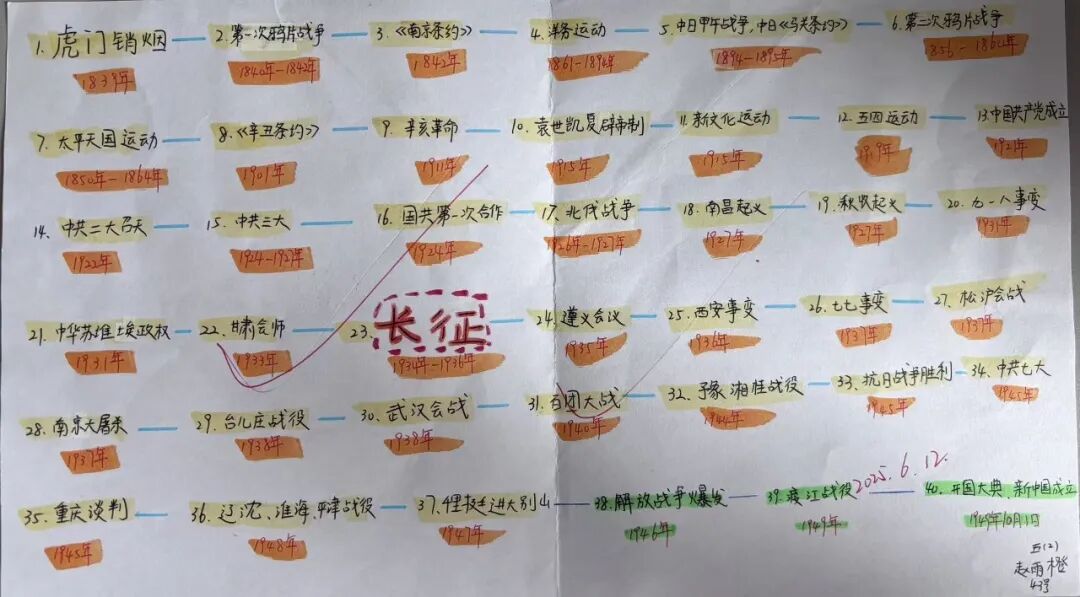 1. 虎门销烟
1839年
2. 第一次鸦片战争
1840年-1842年
3. 《南京条约》
1842年
4. 洋务运动
1861-1894年
5. 中日甲午战争,中日《马关条约》
1894-1895年
6. 第二次鸦片战争
1856-1860年
7. 太平天国运动
1850年-1864年
8. 《辛丑条约》
1901年
9. 辛亥革命
1911年
10. 袁世凯复辟帝制
1915年
11. 新文化运动
1915年
12. 五四运动
1919年
13. 中国共产党成立
1921年
14. 中共二大召天
1922年
15. 中共三大
1924-1927年
16. 国共第一次合作
1924年
17. 北伐战争
1926年-1927年
18. 南昌起义
1927年
19. 秋收起义
1927年
20. 九一八事变
1931年
21. 中华苏维埃政权
1931年
22. 甘肃会师
1933年
23. 长征
1934年-1936年
24. 遵义会议
1935年
25. 西安事变
1936年
26. 七七事变
1937年
27. 松沪会战
1937年
28. 南京大屠杀
1937年
29. 台儿庄战役
1938年
30. 武汉会战
1938年
31. 百团大战
1940年
32. 予象湘桂战役
1944年
33. 抗日战争胜利
1945年
34. 中共七大
1945年
35. 重庆谈判
1945年
36. 辽沈、淮海、平津战役
1948年
37. 挺进大别山
1947年
38. 解放战争爆发
1946年
39. 渡江战役
1949年
2025.6.12.
40. 开国大典、新中国成立
1949年10月1日
五(2)
赵雨橙
43号